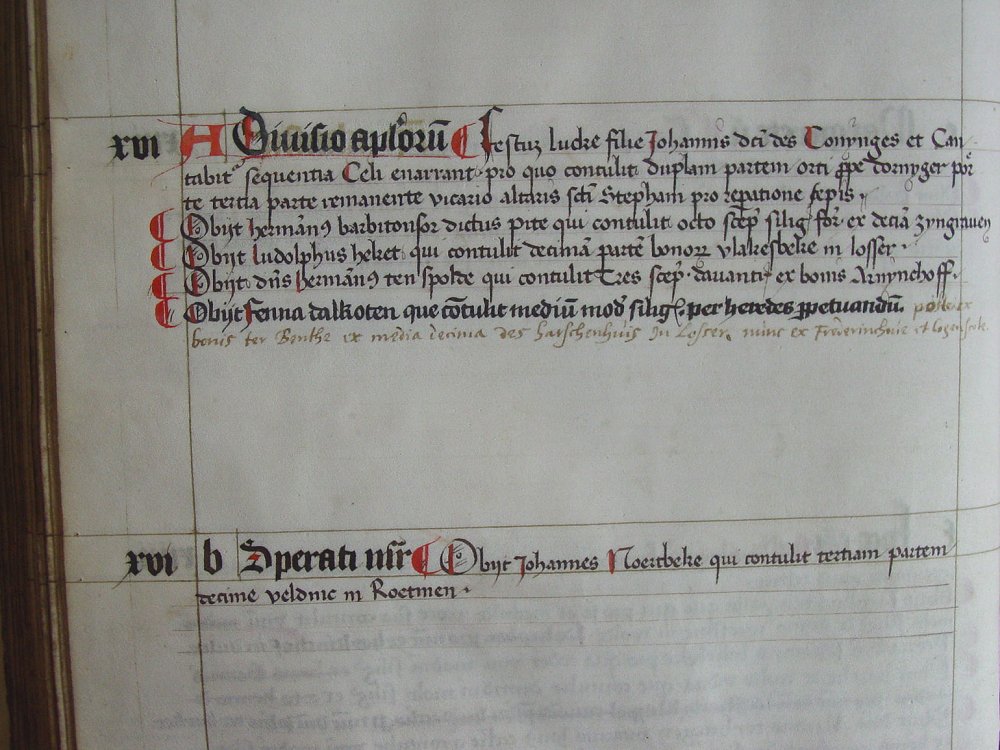 xvii A Divisio aplorū Festuȝ lucke filie Johannis dc̄i des Conynges et Can
tabit sequentia Celi enarrant pro quo contulit duplam partem orti ꝓpe dornyger por
te tertia parte remanente vicario altaris sc̄ti Stephani pro reꝑatione sepis
Obijt hermān9 barbitonsor dictus pite qui contulit octo scep silig for ex decīa zyngraven
Obijt ludolphus heket qui contulit decimā partē bonoꝝ vlakesbeke in losser.
Obijt dn̄s hermān9 ten spolde qui contulit Tres scep davanti ex bonis Arnynchoff.
Obijt Fenna dalkoten que cōtulit mediū mod silig. per heredes ꝑpetuandū.
bonis ter Benthe ex media decima des harschenhuis In Losser. nunc ex
xvi b Dperati mr̄ Obijt Johannes Noertbeke qui contulit tertiam partem
decime veldnic in Roetmen.